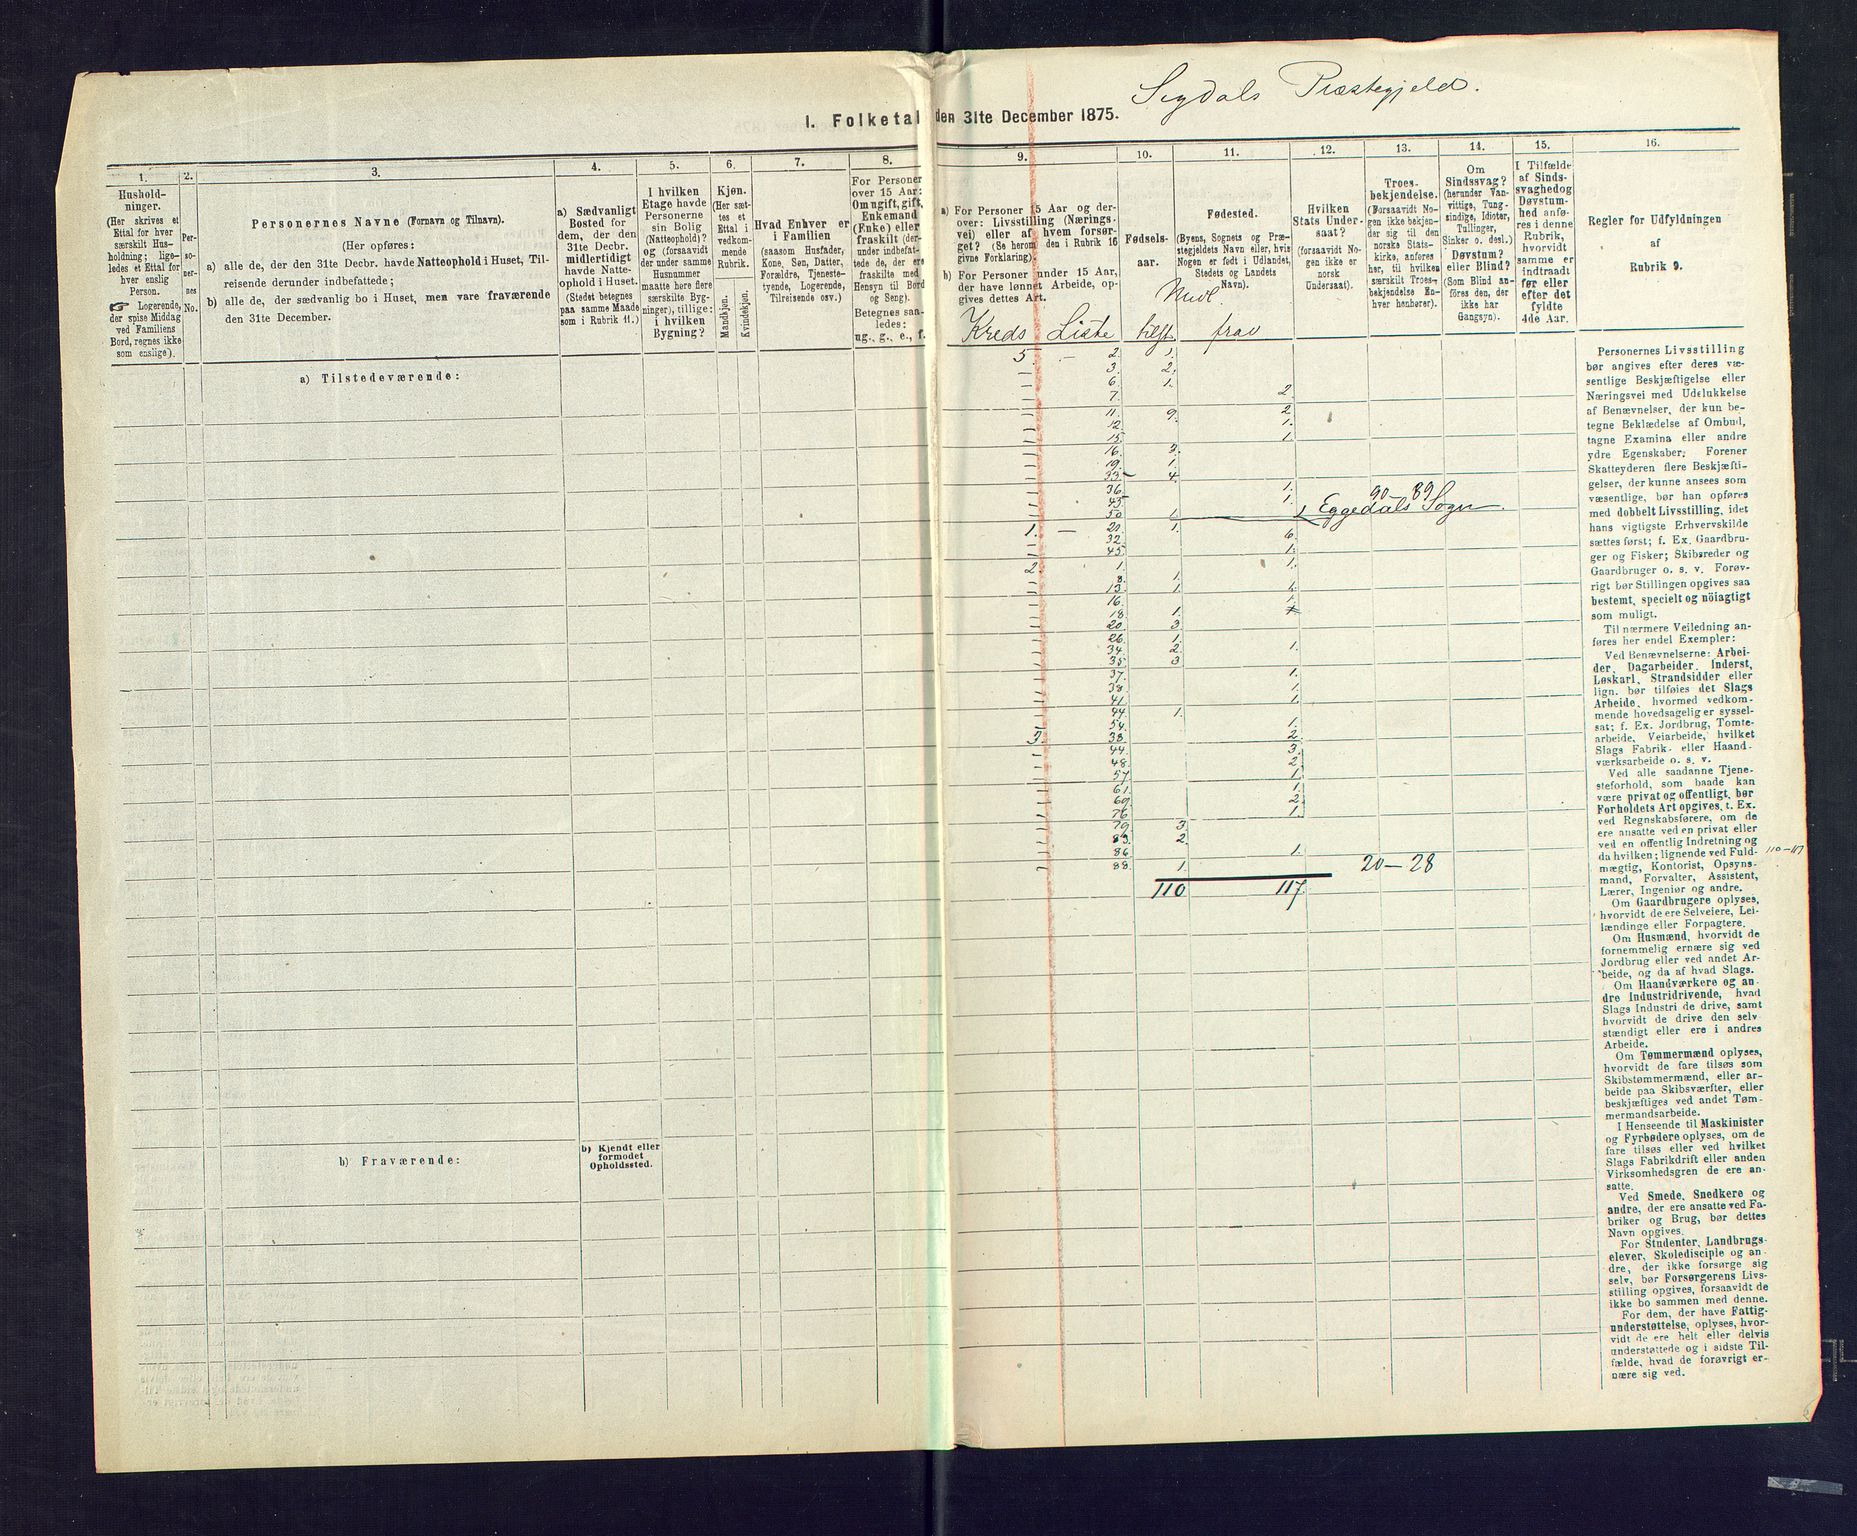 Sigdals Præstegjeld.
I. Folketal den 31te December 1875.
1.
Hushold-
ninger.
(Her skrives et
Ettal for hver
særskilt Hus-
holdning; lige-
ledes et Ettal for
hver enslig
Person.
☞ Logerende,
der spise Middag
ved Familiens
Bord, regnes ikke
som enslige).
2.
Per-
so-
ner-
nes
No.
3.
Personernes Navne (Fornavn og Tilnavn).
(Her opføres:
a) alle de, der den 31te Decbr. havde Natteophold i Huset, Til-
reisende derunder indbefattede;
b) alle de, der sædvanlig bo i Huset, men vare fraværende
den 31te December.
4.
a) Sædvanligt
Bosted for
dem, der den
31te Decbr.
midlertidigt
havde Natte-
ophold i Huset.
(Stedet betegnes
paa samme Maade
som i Rubrik 11.)
5.
I hvilken
Etage havde
Personerne
sin Bolig
(Natteophold)?
og (forsaavidt
der under samme
Husnummer
maatte høre flere
særskilte Byg-
ninger), tillige:
i hvilken
Bygning?
6.
Kjøn.
(Her sæt-
tes et
Ettal i
vedkom-
mende
Rubrik.
Mandkjøn.
Kvindekjøn.
7.
Hvad Enhver er
i Familien
(saasom Husfader,
Kone, Søn, Datter,
Forældre, Tjeneste-
tyende, Logerende,
Tilreisende osv.)
8.
For Personer
over 15 Aar:
Om ugift, gift,
Enkemand
(Enke) eller
fraskilt (der-
under indbefat-
tede de, der ere
fraskilte med
Hensyn til Bord
og Seng).
Betegnes saa-
ledes:
ug., g., e., f.
9.
a) For Personer 15 Aar og der-
over: Livsstilling (Nærings-
vei) eller af hvem forsør-
get? (Se herom den i Rubrik 16
givne Forklaring).
b) For Personer under 15 Aar,
der have lønnet Arbeide, op-
gives dettes Art.
Kreds Liste
10.
Fødsels-
aar.
tilst
11.
Fødested.
(Byens, Sognets og Præ-
stegjeldets Navn eller, hvis
Nogen er født i Udlandet,
Stedets og Landets
Navn).
frav
12.
Hvilken
Stats Under-
saat?
(forsaavidt No-
gen ikke er
norsk
Undersaat).
13.
Troes-
bekjendelse.
(Forsaavidt No-
gen ikke bekjen-
der sig til den
norske Stats-
kirke, anføres
her, til hvilken
særskilt Troes-
bekjendelse En-
hver henhører).
14.
Om
Sindssvag?
(herunder Van-
vittige, Tung-
sindige, Idioter,
Tullinger,
Sinker o. desl.)
Døvstum?
eller Blind?
(Som Blind an-
føres den, der
ikke har
Gangsyn).
15.
I Tilfælde
af Sinds-
svaghed og
Døvstum-
hed anfø-
res i denne
Rubrik,
hvorvidt
samme er
indtraadt
før eller
efter det
fyldte
4de Aar.
16.
Regler for Udfyldningen
af
Rubrik 9.
a) Tilstedeværende:
5 — 2. 1.
3. 2.
6. 1.
7. 2.
11. 9. 2.
12. 1.
15. 1.
16. 3.
19. 1.
33 4.
36. 1.
45. 1.
50 1.
90 — 89
Eggedals Sogn.
1. — 20. 1.
32. 6.
45. 1.
2. 1. 1.
8. 1.
13. 1.
16. 1.
18. 1.
20. 3.
26. 1.
34. 2. 1.
35. 3
37. 1.
38. 1.
41. 1.
44. 1.
54. 1.
3. 38. 2.
44. 3.
48. 2
57. 1.
61. 1.
69. 2.
76. 1.
79. 3.
83. 2.
86. 1.
88. 1.
20 — 28
110 117.
b) Fraværende:
b) Kjendt eller
formodet
Opholdssted.
Personernes Livsstilling
bør angives efter deres væ-
sentlige Beskjæftigelse eller
Næringsvei med Udelukkelse
af Benævnelser, der kun be-
tegne Beklædelse af Ombud,
tagne Examina eller andre
ydre Egenskaber. Forener
Skatteyderen flere Beskjæfti-
gelser, der kunne ansees som
væsentlige, bør han opføres
med dobbelt Livsstilling, idet
hans vigtigste Erhvervskilde
sættes først; f. Ex. Gaardbru-
ger og Fisker; Skibsreder og
Gaardbruger o. s. v. Forøv-
rigt bør Stillingen opgives saa
bestemt, specielt og nöiagtigt
som muligt.
Til nærmere Veiledning an-
føres her endel Exempler:
Ved Benævnelserne: Arbei-
der, Dagarbeider, Inderst,
Løskarl, Strandsidder eller
lign. bør tilføies det Slags
Arbeide, hvormed vedkom-
mende hovedsagelig er syssel-
sat; f. Ex. Jordbrug, Tomte-
arbeide, Veiarbeide, hvilket
Slags Fabrik- eller Haand-
værksarbeide o. s. v.
Ved alle saadanne Tjene-
steforhold, som baade kan
være privat og offentligt, bør
Forholdets Art opgives, t. Ex.
ved Regnskabsførere, om de
ere ansatte ved en privat eller
ved en offentlig Indretning og
da hvilken; lignende ved Fuld-
mægtig, Kontorist, Opsyns-
mand, Forvalter, Assistent,
Lærer, Ingeniør og andre.
110 — 117
Om Gaardbrugere oplyses,
hvorvidt de ere Selveiere, Lei-
lændinge eller Forpagtere.
Om Husmænd, hvorvidt de
fornemmelig ernære sig ved
Jordbrug eller ved andet Ar-
beide, og da af hvad Slags.
Om Haandværkere og an-
dre Industridrivende, hvad
Slags Industri de drive, samt
hvorvidt de drive den selv-
stændigt eller ere i andres
Arbeide.
Om Tømmermænd oplyses,
hvorvidt de fare tilsøs som
Skibstømmermænd, eller ar-
beide paa Skibsværfter, eller
beskjæftiges ved andet Tøm-
mermandsarbeide.
I Henseende til Maskinister
og Fyrbødere oplyses, om de
fare tilsøs eller ved hvilket
Slags Fabrikdrift eller anden
Virksomhedsgren de ere an-
satte.
Ved Smede, Snedkere og
andre, der ere ansatte ved Fa-
briker og Brug, bør dettes
Navn opgives.
For Studenter, Landbrugs-
elever, Skoledisciple og an-
dre, der ikke forsørge sig
selv, bør Forsørgerens Livs-
stilling opgives, forsaavidt de
ikke bo sammen med denne.
For dem, der have Fattig-
understøttelse, oplyses, hvor-
vidt de ere helt eller delvis
understøttede og i sidste Til-
fælde, hvad de forøvrigt er-
nære sig ved.